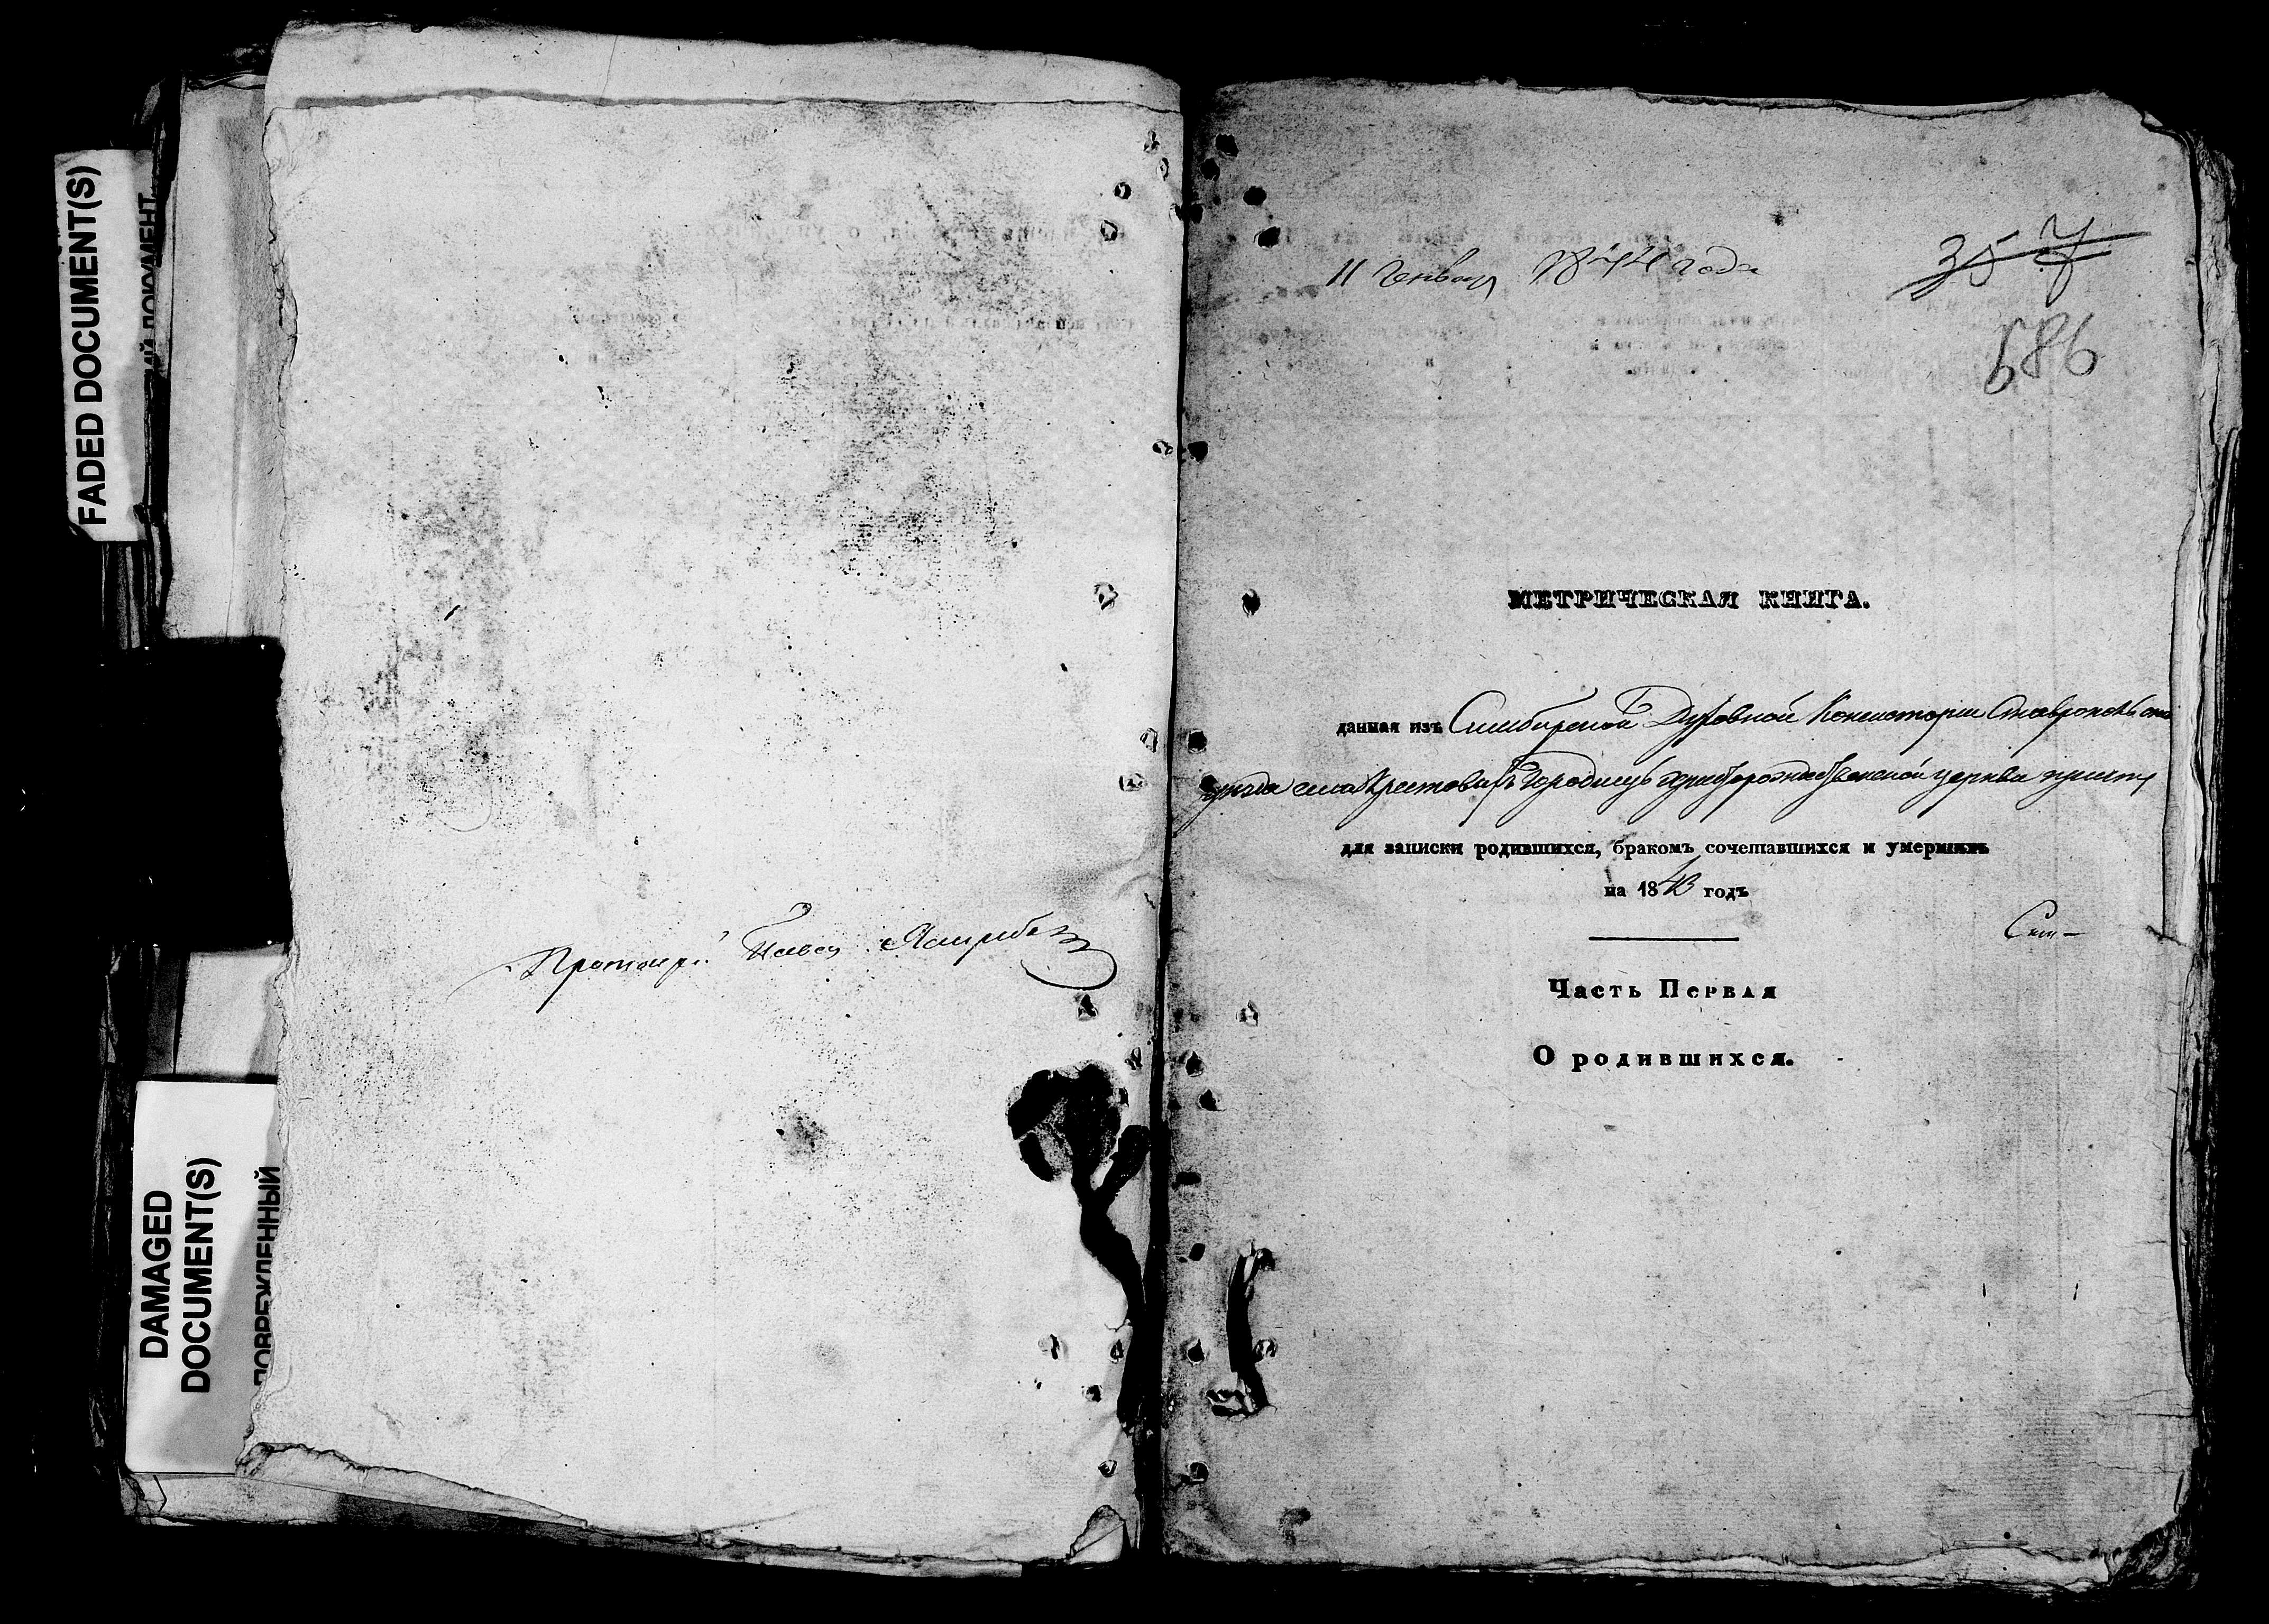 FADED DOCUMENT(S)
ЫЙ ДОКУМЕНТ
DAMAGED
DOCUMENT(S)
ПОВРЕЖДЕННЫЙ
Протоіерей Павел
11 Генваря 1844 года
357
586
МЕТРИЧЕСКАЯ КНИГА.
данная изъ Симбирской Духовной Консисторіи Ставропольскаго
уѣзда села Крестовыхъ Городищь христорождественской церкви причту
для записки родившихся, бракомъ сочетавшихся и умершихъ
на 1843 годъ
Часть Первая
О родившихся.